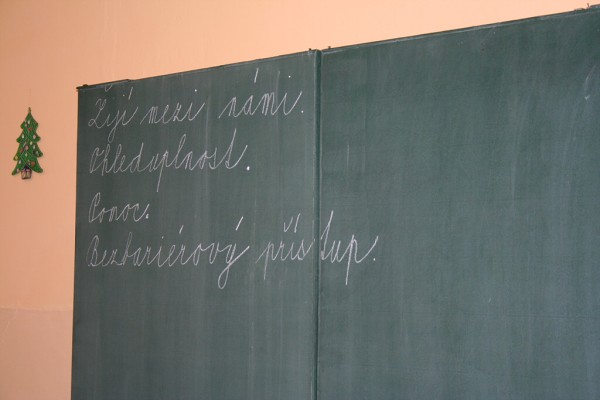 Žijí mezi námi.
Ohleduplnost.
Pomoc.
Bezbariérový přístup.